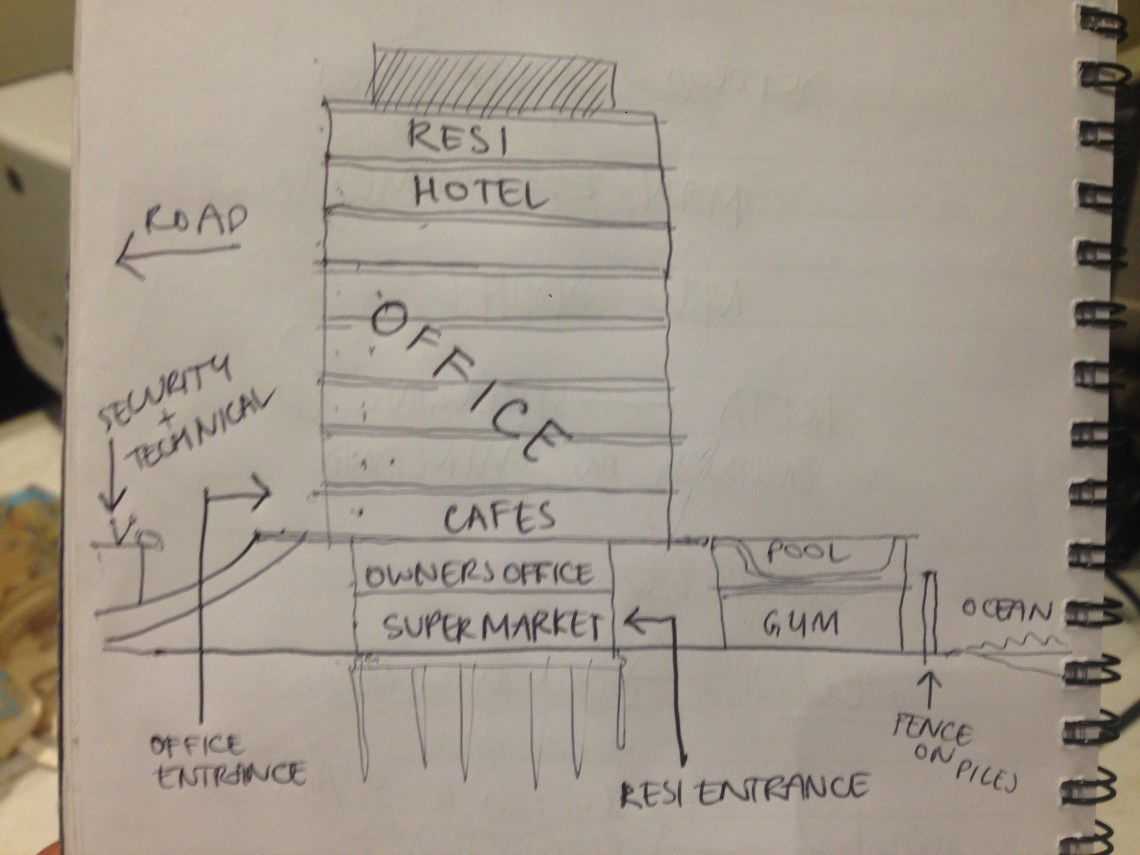 RESI
HOTEL
ROAD
OFFICE
SECURITY
+
TECHNICAL
CAFES
POOL
OWNERS OFFICE
SUPERMARKET
GYM
OCEAN
OFFICE
ENTRANCE
RESI ENTRANCE
FENCE
ON PILES